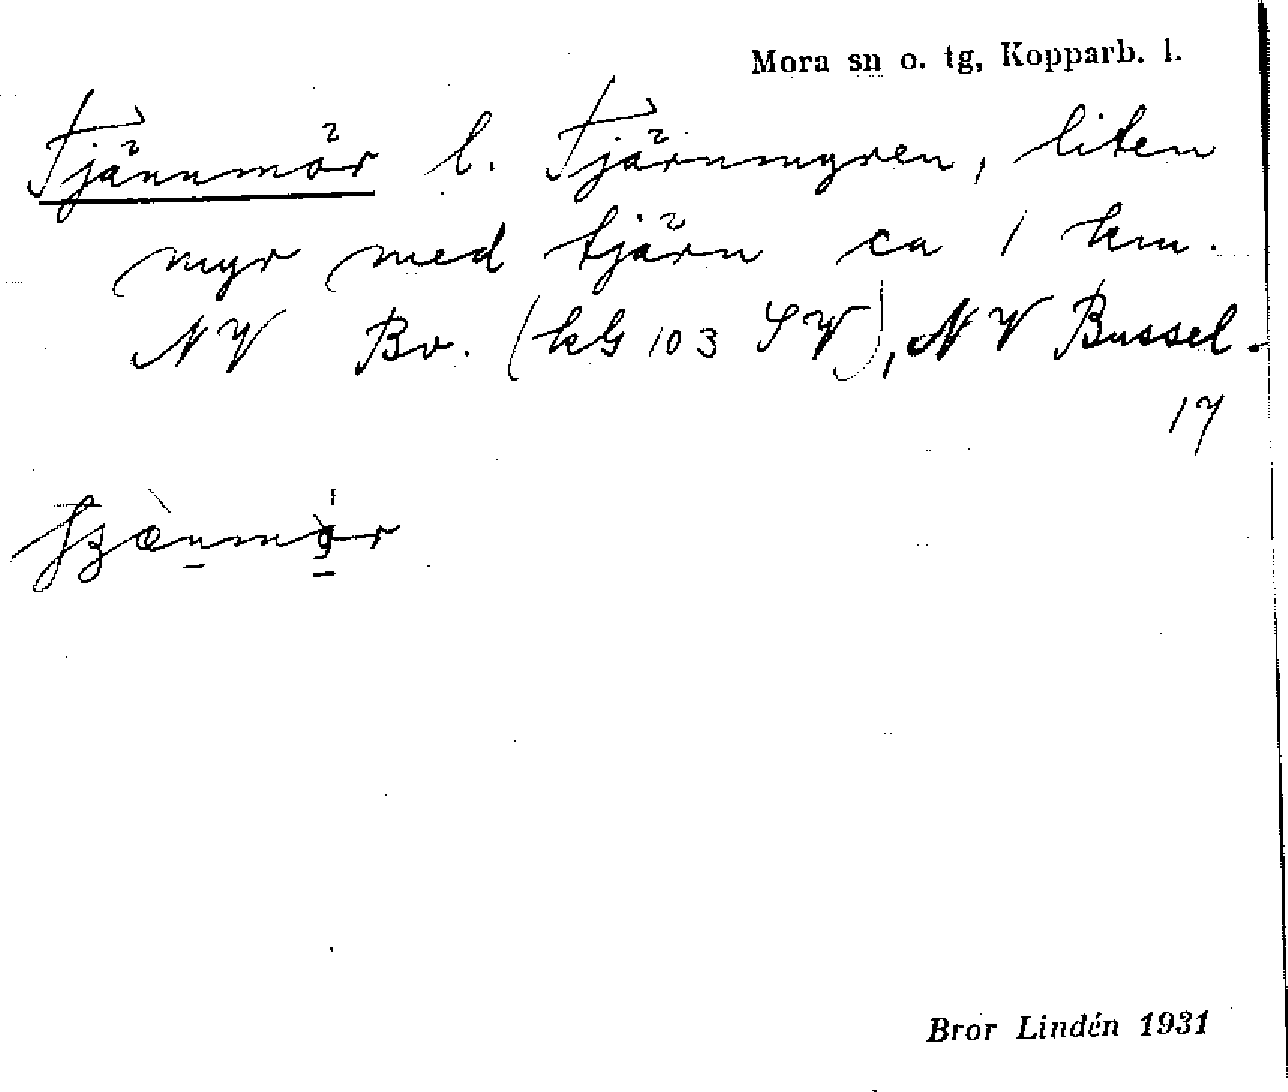 Mora sn o. tg, Kopparb. l.
Tjännmör l. Tjärnmyren, liten
myr med tjärn ca 1 km.
NV Bv. (kG 103 SV), NV Bussel-
17
Bror Lindén 1931